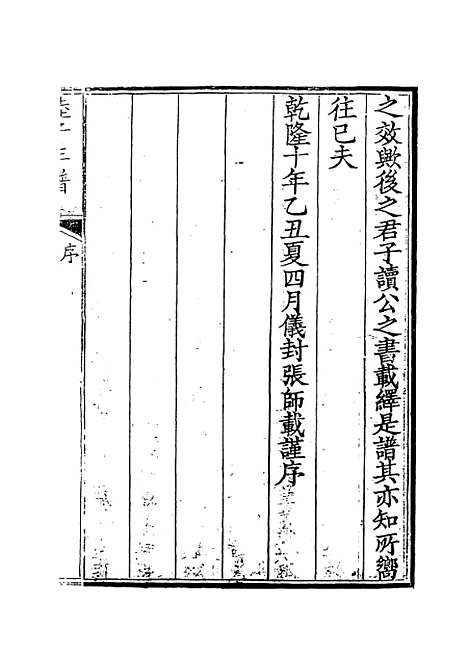 之效歟後之君子讀公之書載繹是譜其亦知所嚮
往已夫
乾隆十年乙丑夏四月儀封張師載謹序
年譜
序